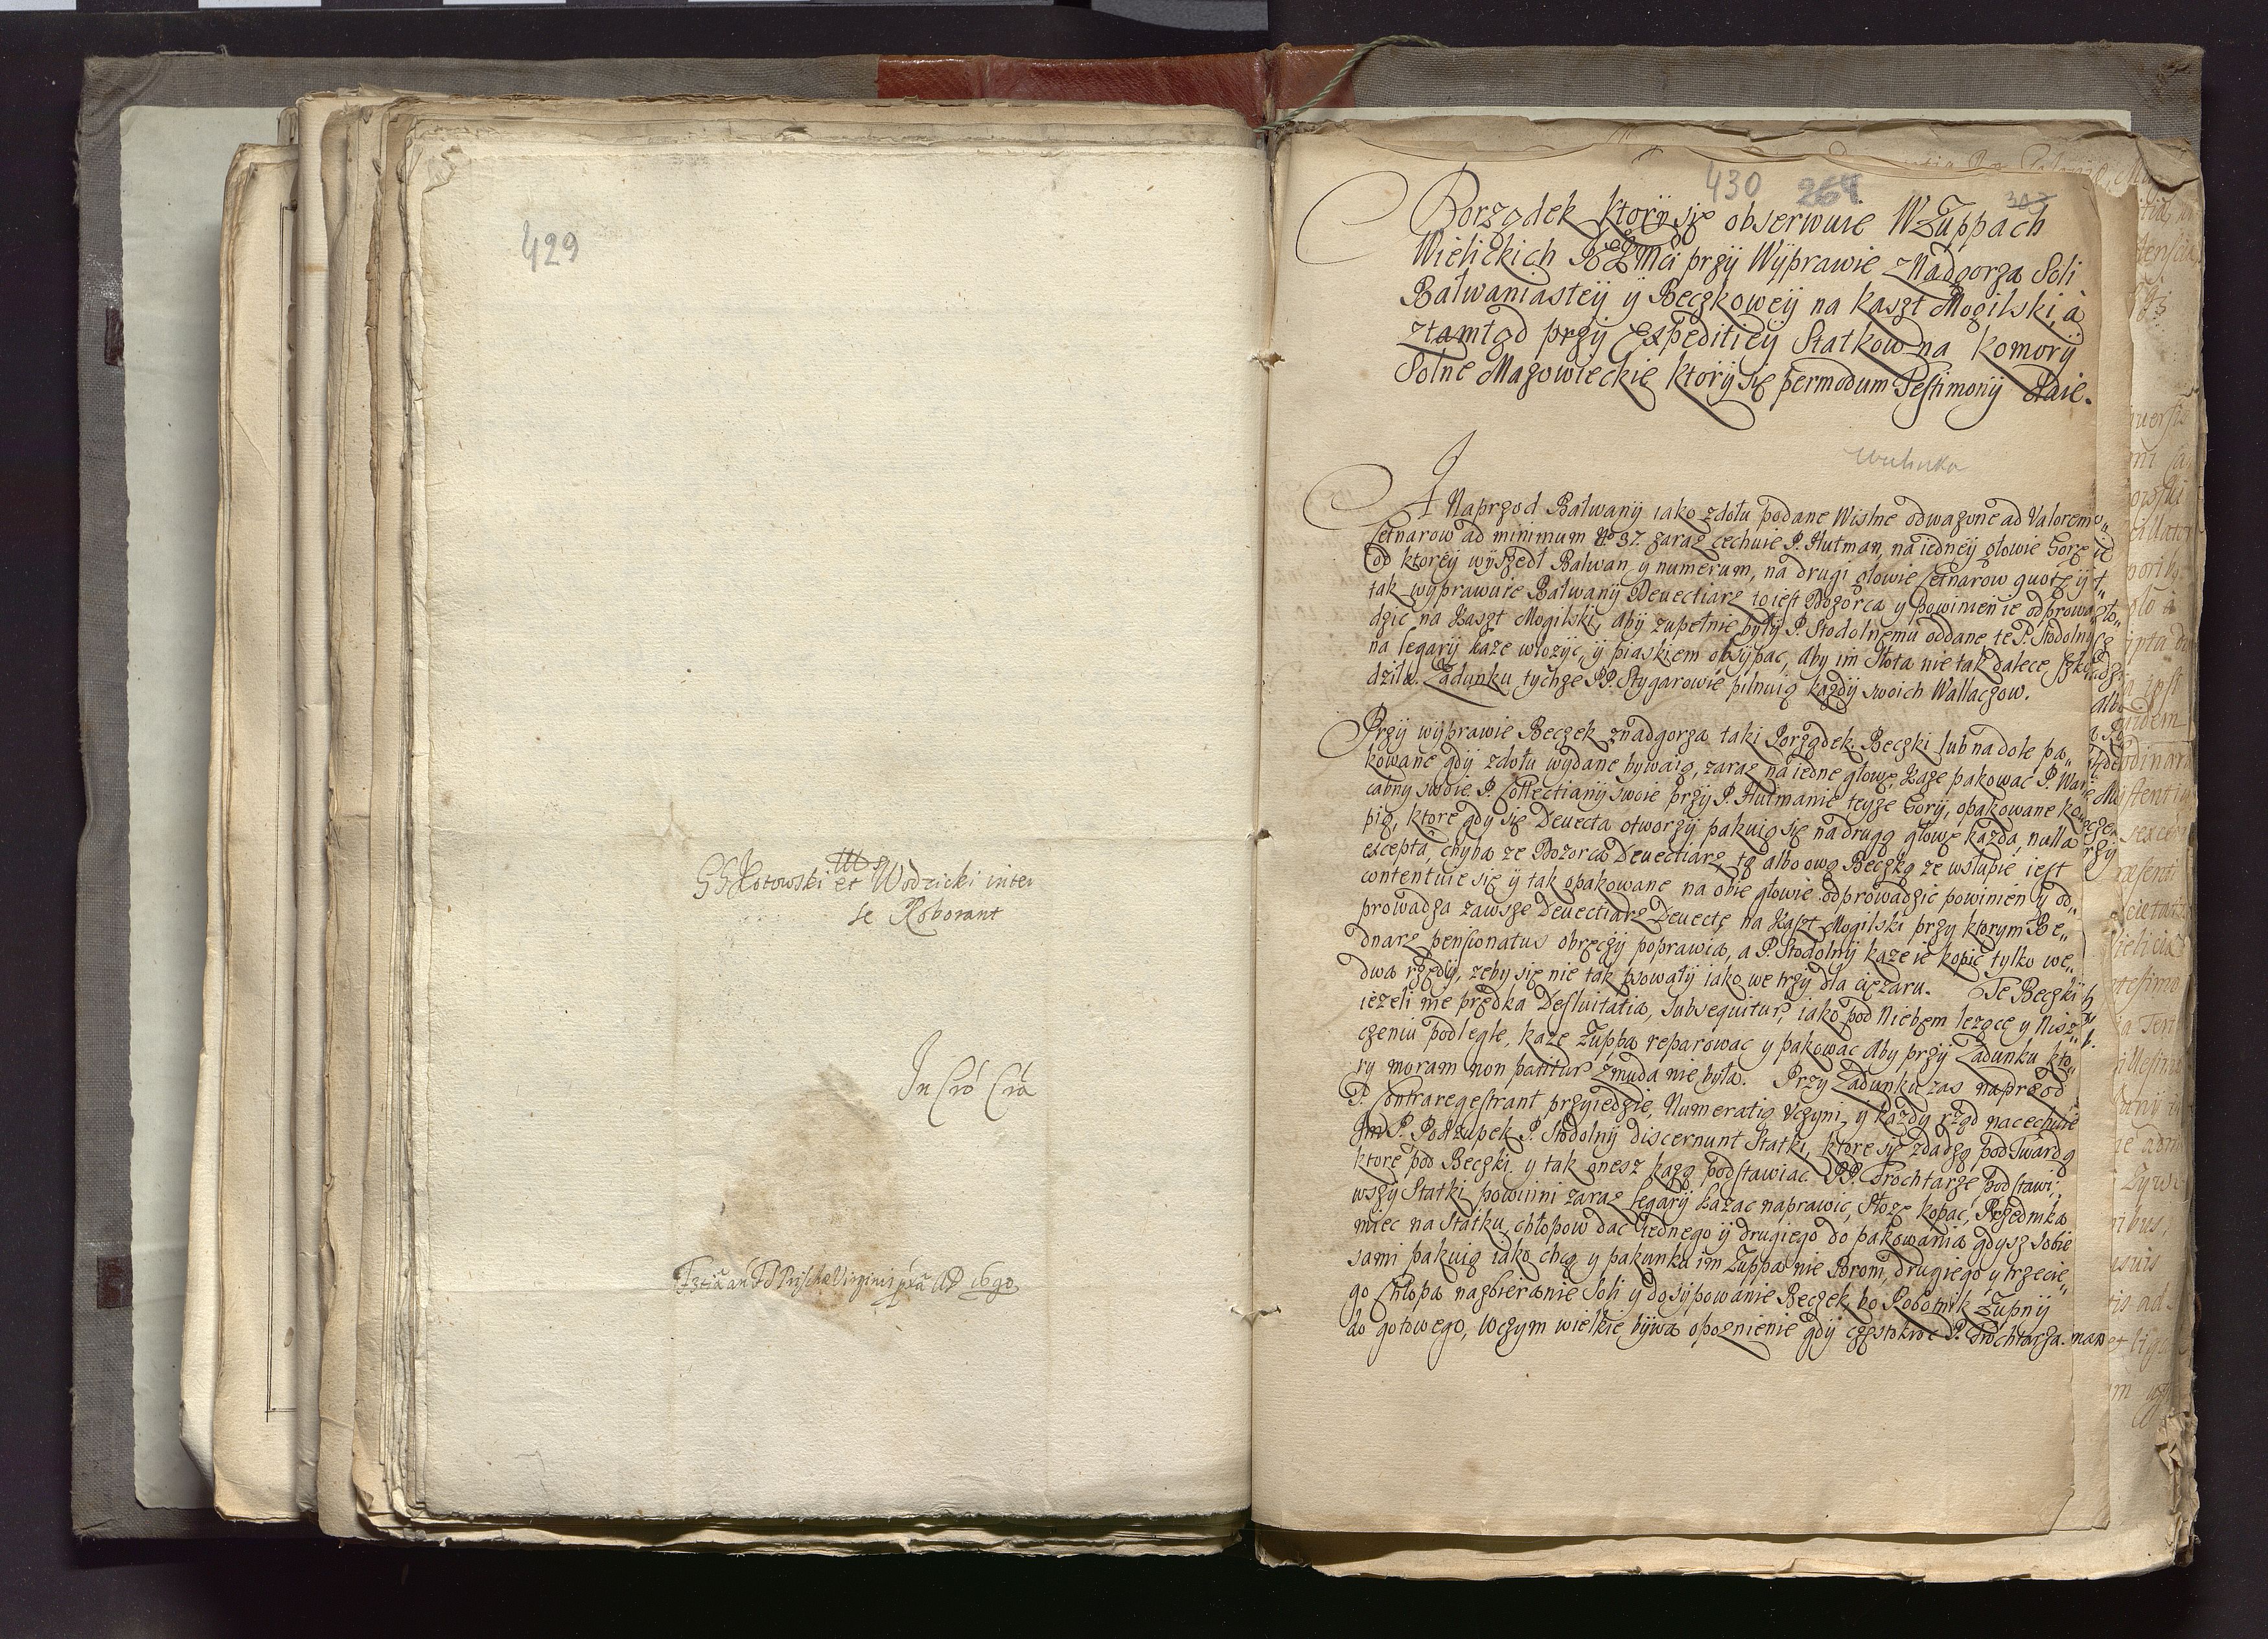 429
GG Kotowski et Wodzicki inter
se Roborant
In Crō Crā
430 264 303
Porządek ktorÿ się obserwuie W Zuppach
Wielickich przÿ Wÿprawie z Nadgorza Soli
Bałwaniasteÿ ÿ Beczkoweÿ na kaszt Mogilski, a
ztamtąd przÿ Expeditieÿ Statkow na Komorÿ
Solne Mazowieckie ktorÿ się per modum Testimonÿ daie.
A Naprzod Bałwanÿ iako zdołu podane Wislne odwazone ad Valorem
Cetnarow ad minimum No 37. zaraz cechuie P. Hutman, na iedneÿ głowie Gorę
od ktoreÿ wÿszedł Bałwan y numerum, na drugi głowie Cetnarow quotę ÿ
tak wÿprawuie Bałwanÿ Deuectiarz to iest Dozorca y powinien ie odprowa
dzic na Kaszt Mogilski, abÿ zupełnie bÿłÿ P. Stodolnemu oddane, te P. Stodolnÿ
na legarÿ kaze włozÿc, ÿ piaskiem obsÿpac, abÿ im słota nie tak dalece szko
dziła. Ładunku tychze PP. Stygarowie pilnuią kazdÿ swoich Wallaczow.
Przÿ wÿprawie Beczek z nadgorza taki Porządek. Beczki lub na dole pa„
kowane gdÿ zdołu wydane bywaią, zaraz na iedne głowę, Kaze pakowac P. War
cabny swoie. P. Collectianÿ swoie przÿ P. Hutmanie teyze Gorÿ, opakowane ko
pią, ktore gdÿ się Deuecta otworzÿ pakuią się na drugą głowę kazda, nulla
excepta, chyba ze Dozorca Deuectiarz, tą albo ową Beczką ze wsłupie iest
contentuie się ÿ tak opakowane na obie głowie odprowadzic powinien ÿ od„
prowadza zawsze Deuectiarz Deuectę na Kaszt Mogilski przy ktorym Be„
dnarz pensionatus obręczÿ poprawia, a P. Stodolnÿ kaze ie kopic tylko we„
dwa rzędÿ, zeby się nie tak psowałÿ iako we trzÿ dla ciężaru. Te Beczki
iezeli nie prędka Defluitatia, subsequitur, iako pod Niebem lezące y Nisz„
czeniu podległe, kaze Zuppa reparowac y pakowac Aby przÿ Ładunku kto„
ry moram non patitur zmuda nie była. Przy Ładunku zas naprzod
P. Contraregestrant przyiedzie, Numeratią Vczyni, ÿ kazdy rząd nacechuie
P. Podzupek P. Stodolnÿ discernunt Statki, ktore się zdadzą pod Twardą
ktore pod Beczki, y tak onesz kazą podstawiac. PP. Frochtarze podstawi„
wszÿ Statki powinni zaraz legarÿ kazac naprawic, Stoze kopac, Przednika
miec na Statku, chłopow dac iednego ÿ drugiego do pakowania gdysz sobie
sami pakuią iako chcą y pakunku im Zuppa nie Boroni, drugiego y trzecie„
go Chłopa na zbieranie Soli y dosÿpowanie Beczek, bo Robotnik Zupnÿ
do gotowego, Wczym wielkie bywa opoznienie gdÿ częstokroc P. Frochtarza.